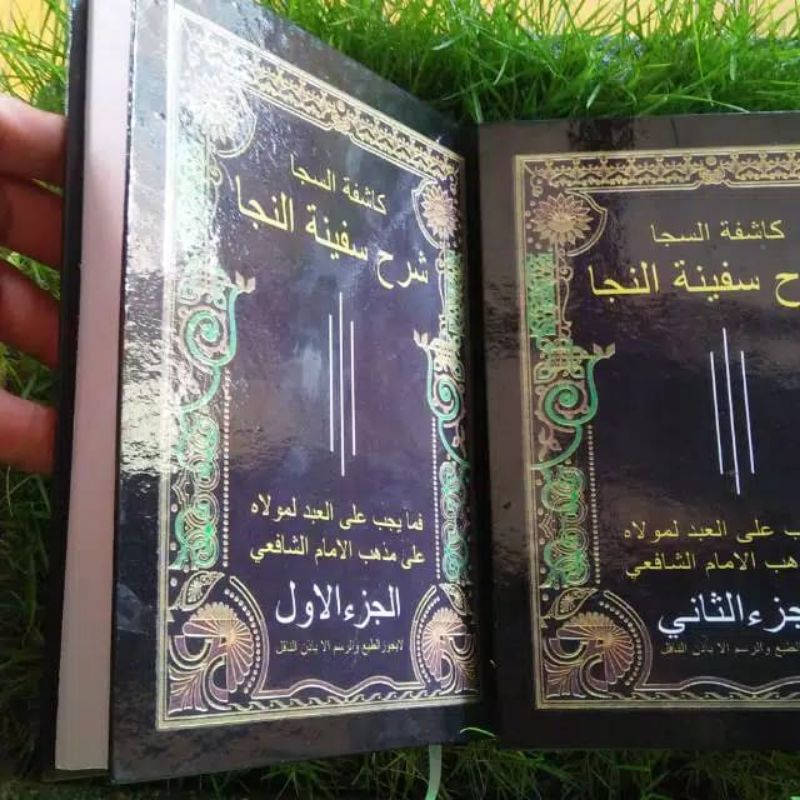 كاشفة السجا
شرح سفينة النجا
فما يجب على العبد لمولاه
على مذهب الامام الشافعي
الجزء الاول
لايجوز الطبع والرسم الا باذن الناقل
كاشفة السجا
ح سفينة النجا
ب على العبد لمولاه
هب الامام الشافعي
جزء الثاني
الطبع والرسم الا باذن الناقل